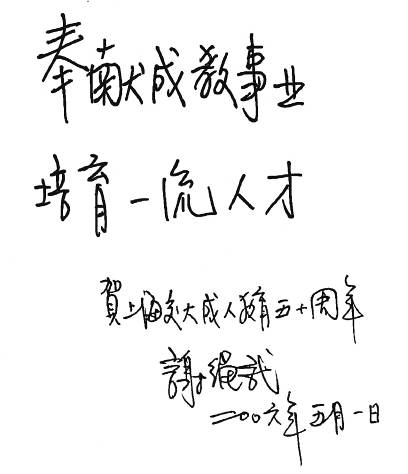 奉献成教事业
培育一流人才
賀上海交大成人教育五十周年
謝绳武
二〇〇六年五月一日